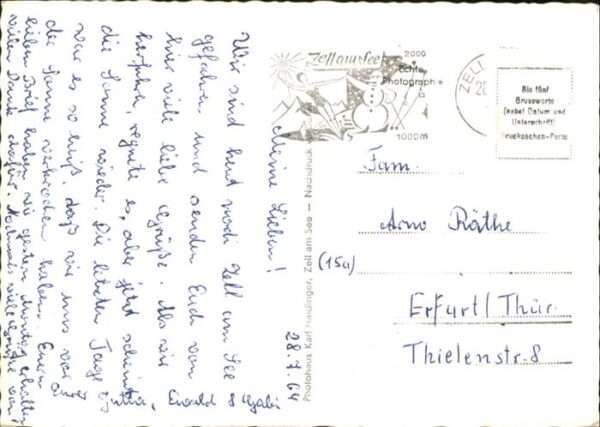 Meine Lieben!
28.7.64
Wir sind heut nach Zell am See
gefahren und senden Euch von
hier viele liebe Grüße. Als wir
herfuhren, regnete es, aber jetzt scheint
die Sonne wieder. Die letzten Tage
war es so heiß, daß wir uns vor
der Sonne verkrochen haben. Euren
lieben Brief haben wir gestern Montag erhalten
vielen Dank dafür. Nochmals viele Grüße von
Eurer
Ewald & Gabi
Photohaus Karl Haidinger, Zell am See — Nachdruck
Zell am See
2000
1000m
Echte
Photographie
ZELL
Bis fünf
Grussworte
(nebst Datum und
Unterschrift)
Drucksachen-Porto
Fam.
Arno Räthe
(15a)
Erfurt/Thür.
Thielenstr. 8